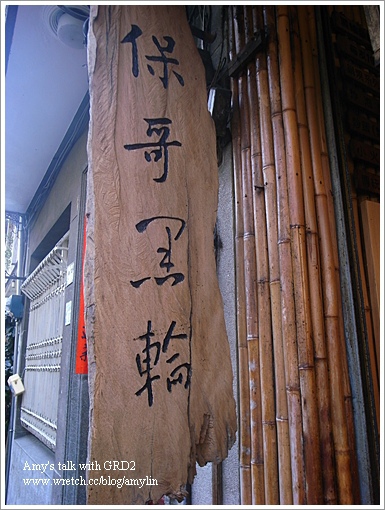 保哥黑輪
Amy's talk with GRD2
www.wretch.cc/blog/amylin